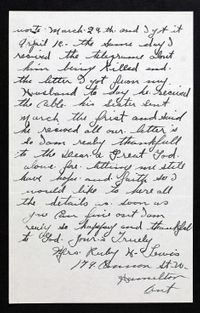 wrote March 29th and I got it
April 12. the same day I
recived the telegrame that
him being Killed and
the letter I got from my
Husband to say he recived
the Cable. his sister sent
March the first and said
he recived all our letter's
so I am realy thankfull
to the Great God.
above for letting me still
have hope and faith so I
would like to here all
the details as soon as
you Can find out I am
realy so happy and thankful
to God. Your's Truely
Mrs. Ruby H. Lewis
179 Cannon St. W.
Hamilton
Ont